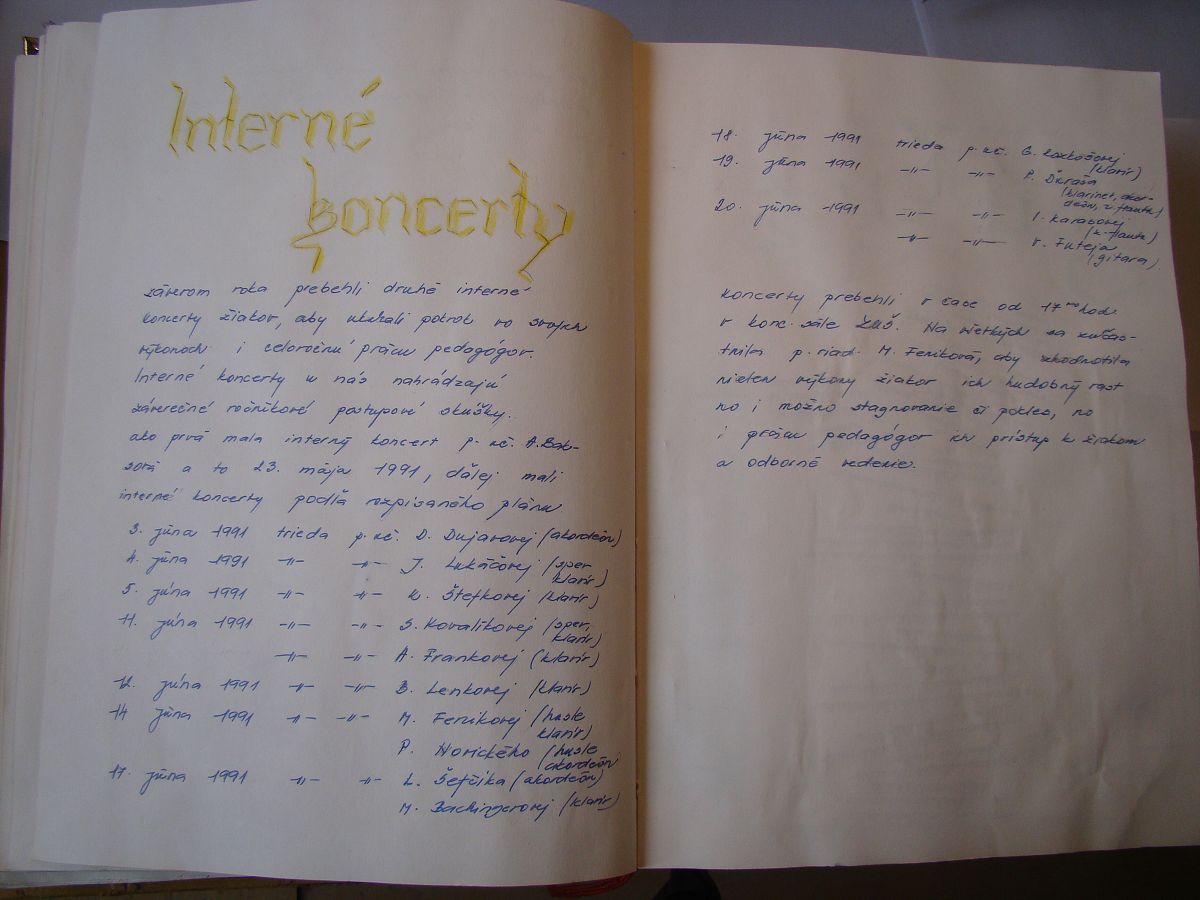 Interné
koncerty
záverom roka prebehli druhé interné
koncerty žiakov, aby ukázali pokrok vo svojich
výkonoch i celoročnú prácu pedagógov.
Interné koncerty u nás nahrádzajú
záverečné ročníkové postupové skúšky.
ako prvá mala interný koncert p. uč. A. Bab-
sotá a to 23. mája 1991, ďalej mali
interné koncerty podľa rozpísaného plánu
3. júna 1991 trieda p. uč. D. Dujavovej (akordeón)
4. júna 1991 -"- -"- J. Lukáčovej (spev
klavír)
5. júna 1991 -"- -"- K. Štefkovej (klavír)
11. júna 1991 -"- -"- S. Kovalíkovej (spev,
klavír)
-"- -"- A. Frankovej (klavír)
12. júna 1991 -"- -"- B. Lenkovej (klavír)
14 júna 1991 -"- -"- M. Feníkovej (husle
klavír)
P. Novického (husle
akordeón)
17. júna 1991 -"- -"- L. Šefčíka (akordeón)
M. Bachingerovej (klavír)
18. júna 1991 trieda p. uč. G.
(klavír)
19. júna 1991 -"- -"- P. Škraša
(klarinet, akor-
deón, z. flauta)
20. júna 1991 -"- -"- I. Karabovej
(z. flauta)
-"- -"- V. Futeja
(gitara)
Koncerty prebehli v čase od 17 00 hod
v konc. sále ĽUŠ. Na všetkých sa zúčas-
tnila p. riad. M. Feníková, aby zhodnotila
nielen výkony žiakov ich hudobný rast
no i možno stagnovanie či pokles, no
i prácu pedagógov ich prístup k žiakom
a odborné vedenie.